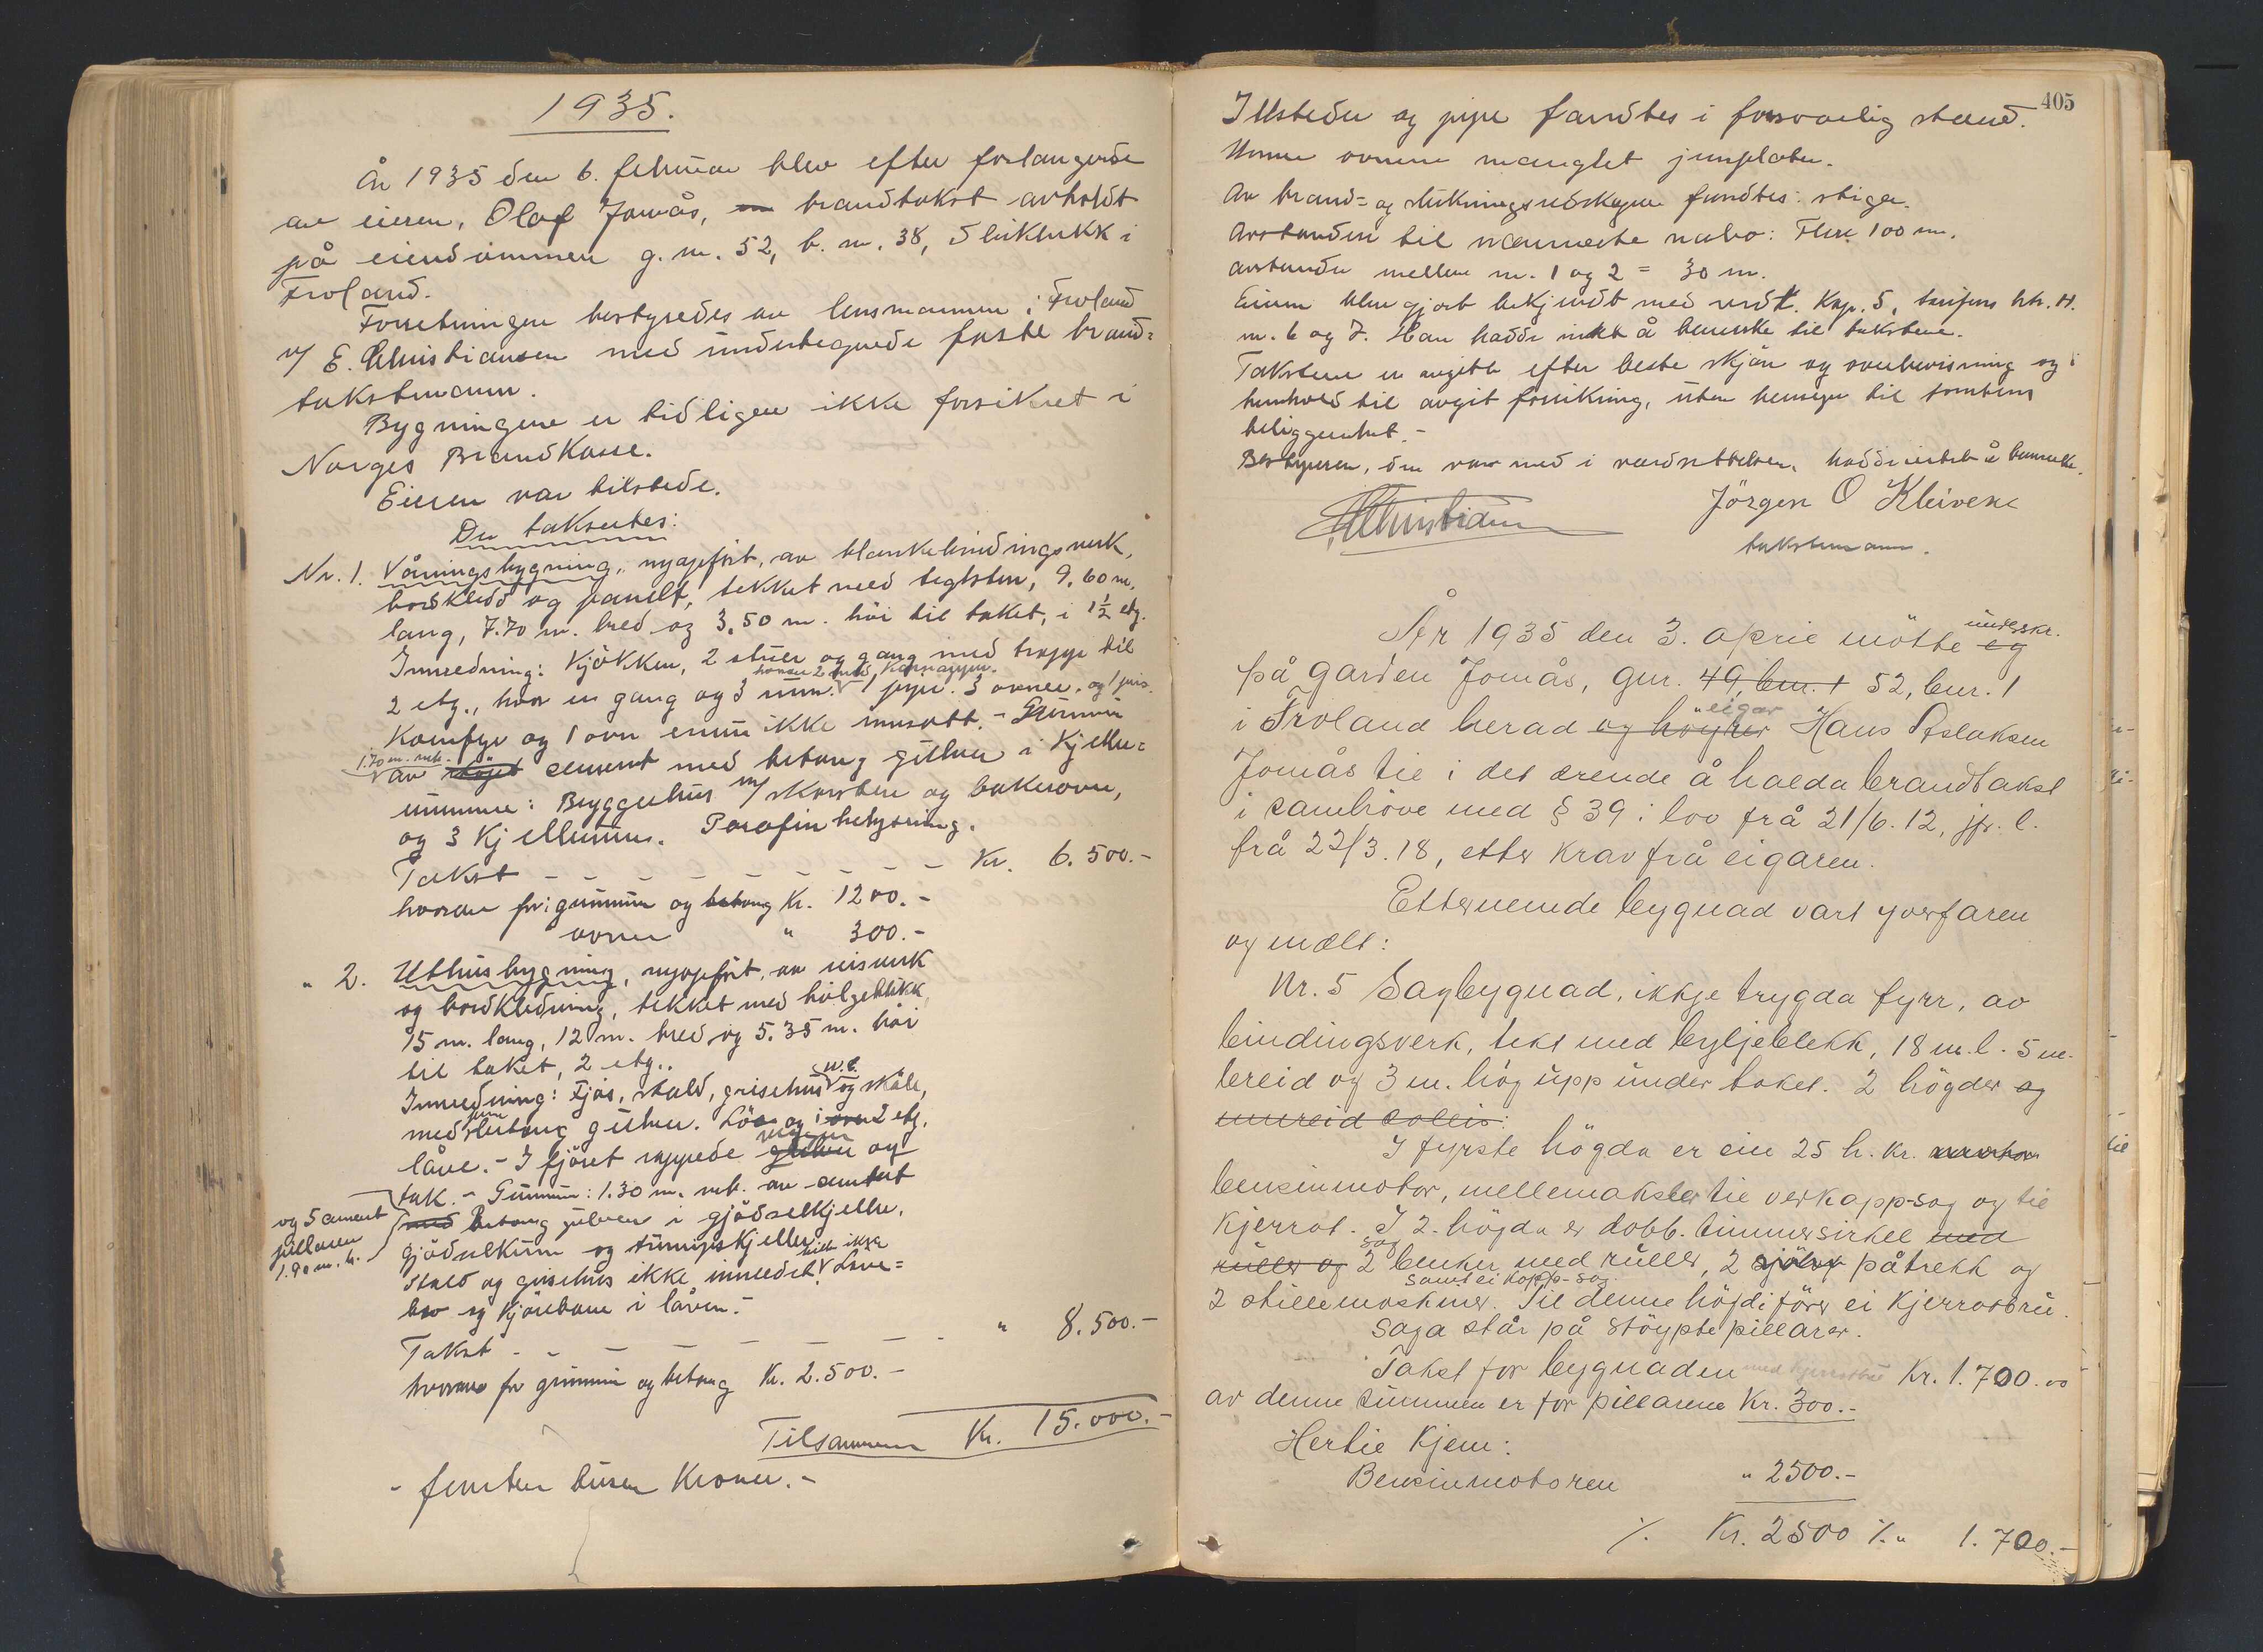 1935.
År 1935 den 6. februar blev efter forlangende
av eieren, Olaf Jomås, brandtakst avholdt
på eiendommen g. nr. 52, b. nr. 38, i
Froland.
Forretningen bestyredes av lensmannen i Froland
v/ E. Christiansen med undertegnede faste brand=
takstmann.
Bygningene er tidligere ikke forsikret i
Norges Brandkasse.
Eieren var tilstede.
Der taksertes:
Nr. 1. Våningsbygning, nyopført, av plankebindingsverk,
bordkledd og panelt, tekket med teglsten, 9,60 m.
lang, 7.70 m. bred og 3,50 m. høi til taket, i 1½ etg.
Innredning: Kjøkken, 2 stuer og gang med trapp til
2 etg., hvor en gang og 3 rum. 1 pipe. 3 ovner. og 1
komfyr og 1 ovn ennu ikke innsatt. - Grunnmur
1.70 m.
av cement med betong gulver i kjeller=
rummene: Bryggerhus m/ skorsten og bakerovn,
og 3 kjellerrum. Parafin belysning.
Takst - - - - - - - - Kr. 6.500.-
hvorav for: grunnmur og betong Kr. 1200.-
ovner " 300.-
" 2. Uthusbygning, nyopført, av reisverk
og bordkledning, tekket med bølgeblikk
15 m. lang, 12 m. bred og 5.35 m. høi
til taket, 2 etg..
w.c.
Innredning: Fjøs, stald, grisehus og skåle,
med betong gulver. Løe og i 2 etg.
låve. - I fjøset rappede vegger og
tak. - Grunnmur: 1.30 m. av cement
og 5 cement
pillarer
1.90 m. h.
betong gulver i gjødselkjeller.
gjødselrum og turnipskjeller
Stald og grisehus ikke innredet. Låve=
bro og kjørebane i låven.-
Takst - - - - - - " 8.500.-
hvorav for grunnmur og betong Kr. 2.500.-
Tilsammen Kr. 15.000.-
- femten tusen kroner.-
405
Ildsteder og pipe fandtes i forsvarlig stand.
ovnene manglet jernplater.
Av brand= og slukningsredskaper fandtes: stiger.
Avstanden til nærmeste nabo: Flere 100 m.
avstanden mellem nr. 1 og 2 = 30 m.
Eieren blev gjort bekjendt med vedt. Kap. 5, tarifens litr. H.
nr. 6 og 7. Han hadde intet å bemerke til takstene.
Takstene er avgitt efter beste skjøn og overbevisning og i
henhold til avgit forsikring, uten hensyn til tomtens
beliggenhet.-
Bestyreren, den var med i verdsettelsen, hadde intet å bemerke.
E Christiansen
Jörgen O Kleivene
takstmann.
År 1935 den 3. april mötte underskr.
på garden Jomås, gnr. 49, bnr. 1 52, bnr. 1
i Froland herad og høyrer eigar Hans Aslaksen
Jomås til i det ærende å halda brandtakst
i samhøve med § 39 i lov frå 21/6. 12, jfr. l.
frå 22/3. 18, etter krav frå eigaren.
Etternemde bygnad vart yverfaren
og mælt:
Nr. 5 Sagbygnad, ikkje trygda fyrr, av
bindingsverk, tekt med bylgjeblekk, 18 m. l. 5 m.
breid og 3 m. høg upp under taket. 2 høgder og
I fyrste høgda er ein 25 h. kr.
bensinmotor, mellemaksler til verkapp-sag og til
Kjerrat. I 2. høgda er dobb. timmersirkel med
ruller og sag 2 benker med ruller, 2 påtrekk og
samt ei kapp-sag.
2 stillemaskiner. Til denne høgdi fører ei Kjerratbru.
Saga står på støypte pillarer.
Takst for bygnaden med kjerratbru Kr. 1.700.00
av denne summen er for pillarene Kr. 300.-
Hertil kjem:
Bensinmotoren " 2500.-
% Kr. 2500 %. " 1.700.-